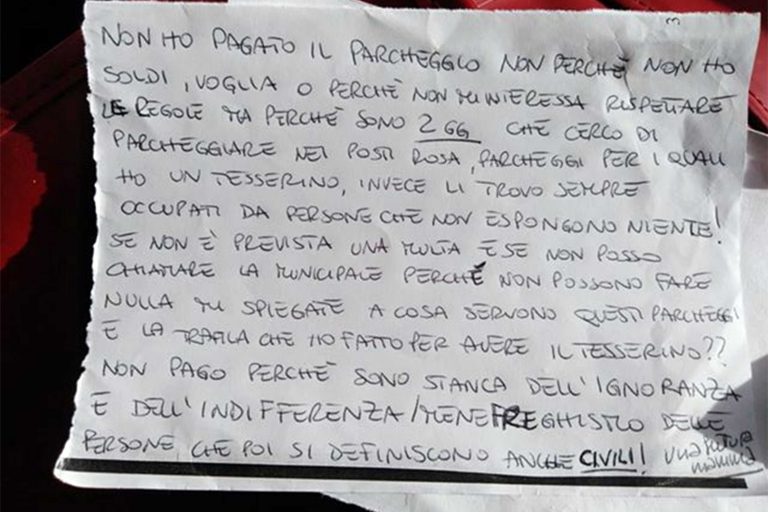 NON HO PAGATO IL PARCHEGGIO NON PERCHÈ NON HO
SOLDI, VOGLIA O PERCHÈ NON MI INTERESSA RISPETTARE
LE REGOLE MA PERCHÈ SONO 2 GG CHE CERCO DI
PARCHEGGIARE NEI POSTI ROSA, PARCHEGGI PER I QUALI
HO UN TESSERINO, INVECE LI TROVO SEMPRE
OCCUPATI DA PERSONE CHE NON ESPONGONO NIENTE!
SE NON È PREVISTA UNA MULTA E SE NON POSSO
CHIAMARE LA MUNICIPALE PERCHÈ NON POSSONO FARE
NULLA MI SPIEGATE A COSA SERVONO QUESTI PARCHEGGI
E LA TRAFILA CHE HO FATTO PER AVERE IL TESSERINO??
NON PAGO PERCHÈ SONO STANCA DELL'IGNORANZA
E DELL'INDIFFERENZA/MENEFREGHISMO DELLE
PERSONE, CHE POI SI DEFINISCONO ANCHE CIVILI! Una futura
mamma